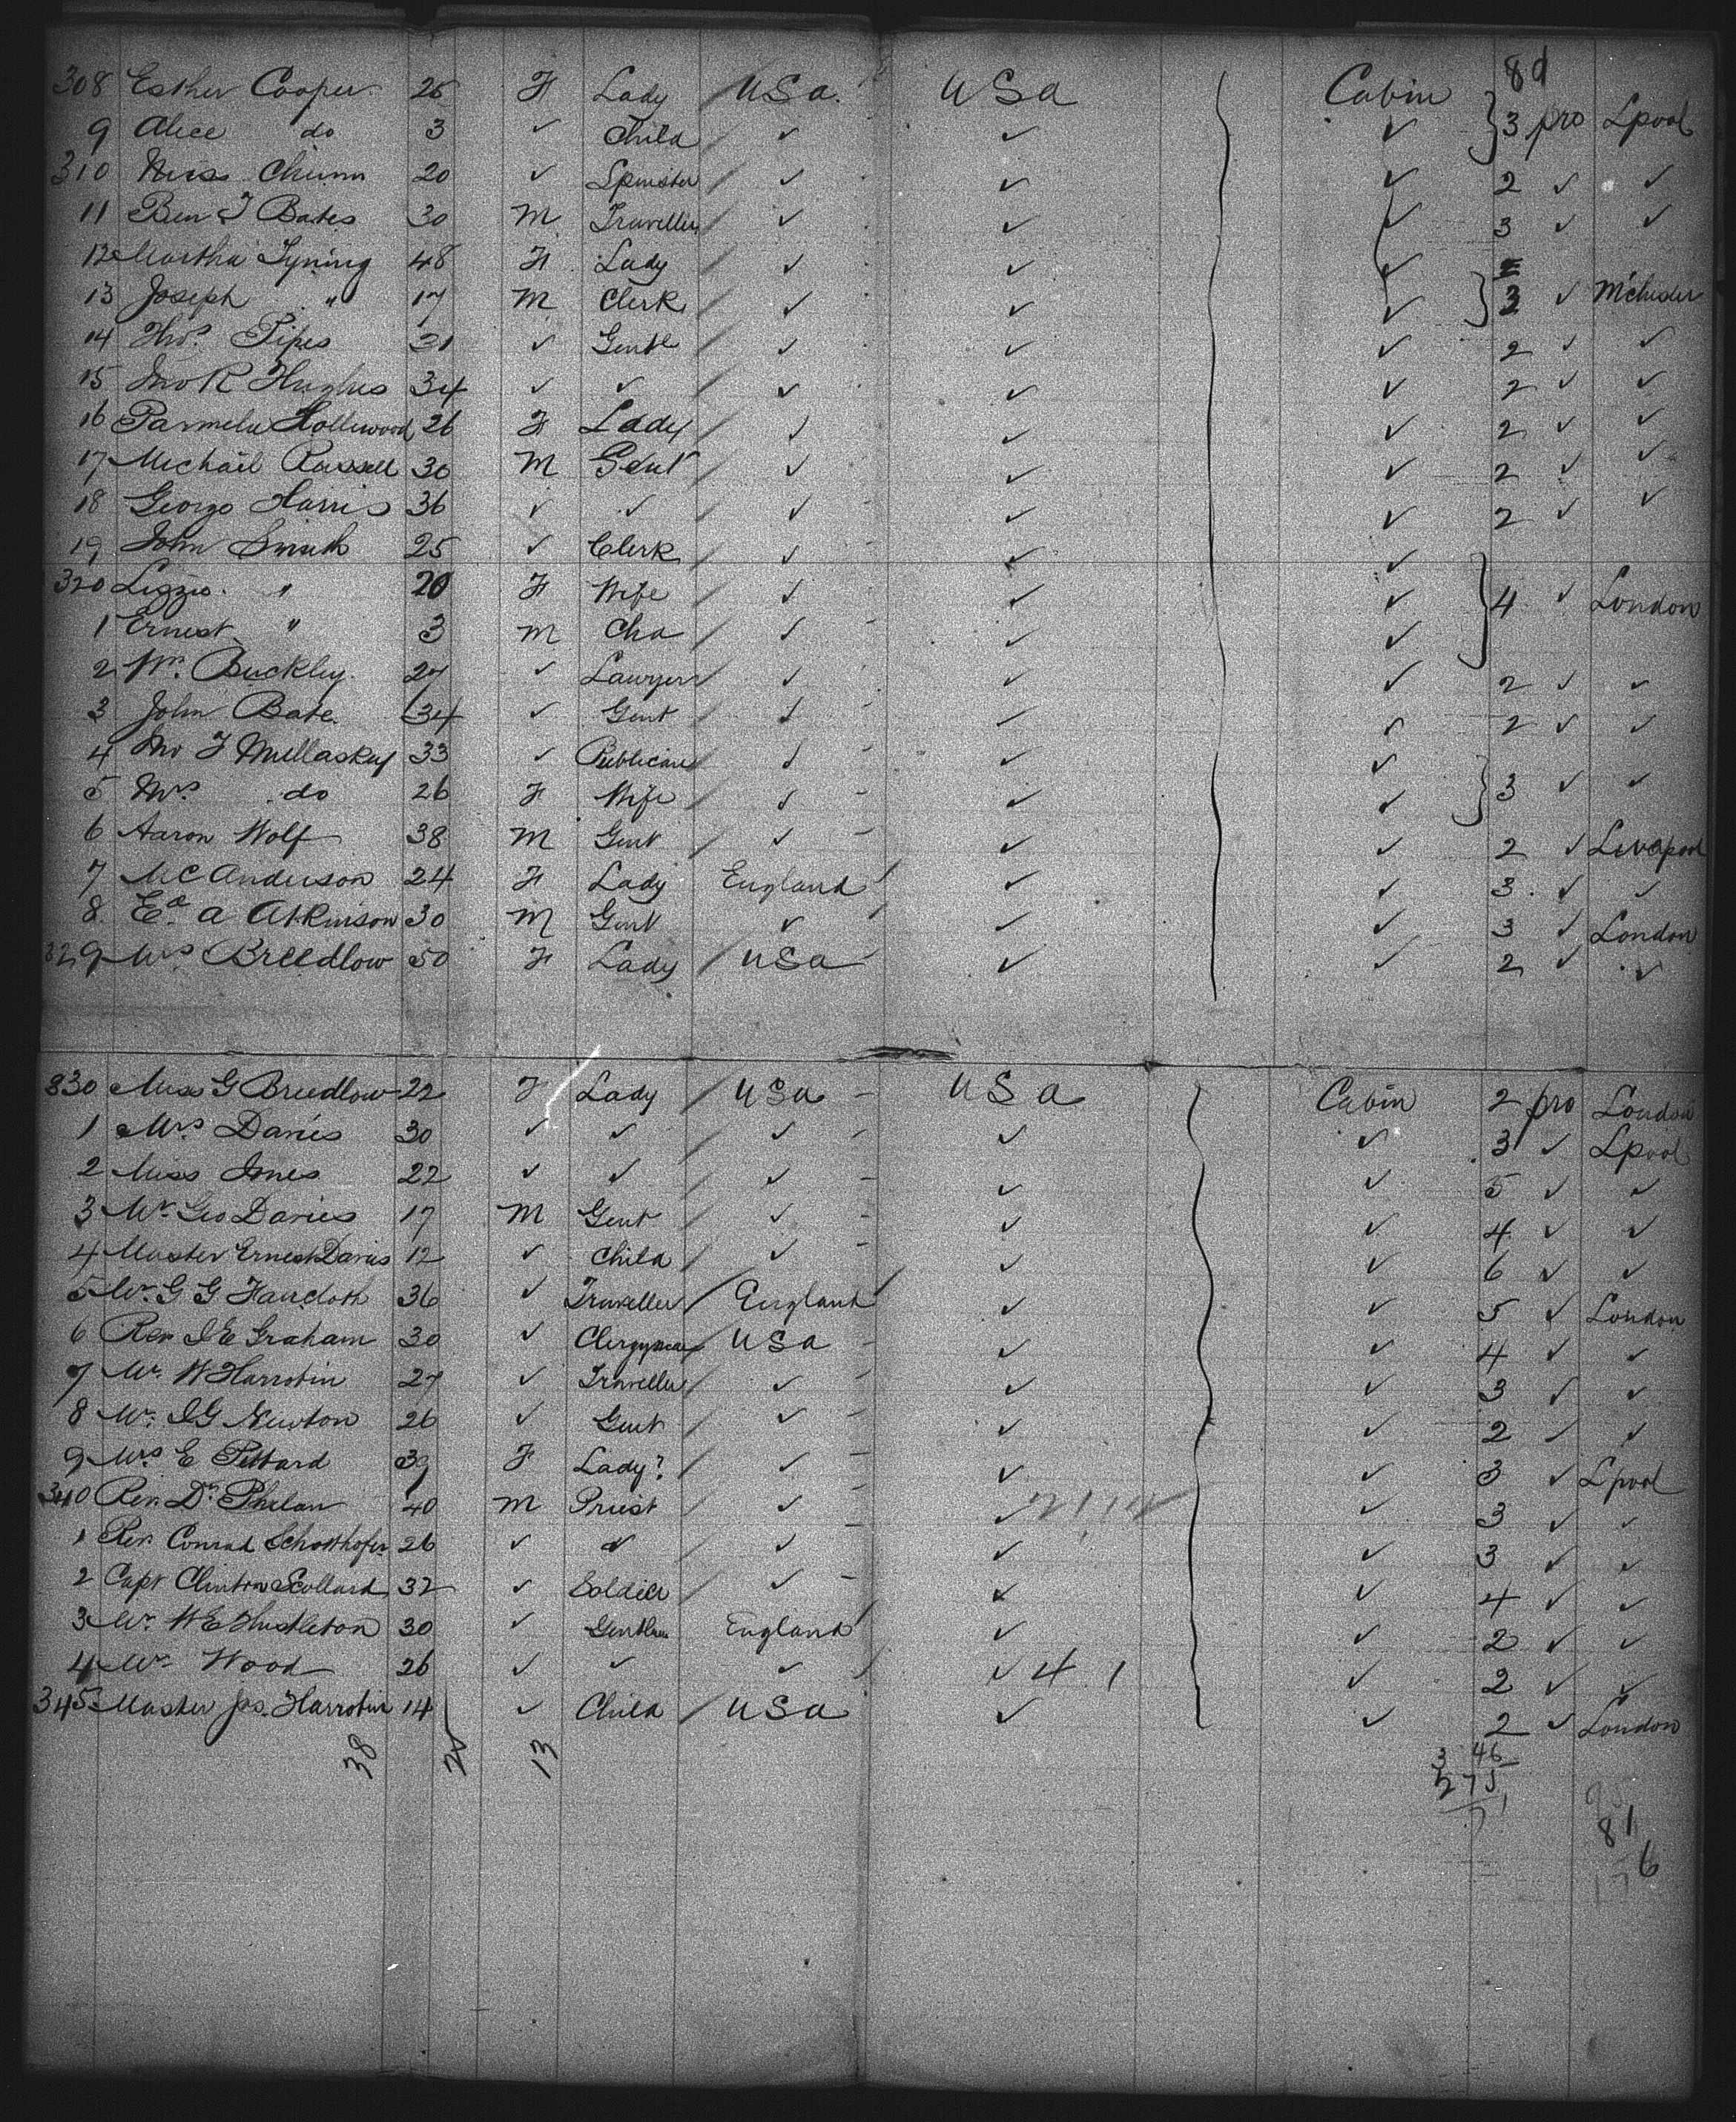 89
308 Esther Cooper 26 F Lady / USa. USa Cabin 3 pro Lpool
9 Alice do 3 ✓ Child / ✓ ✓ ✓
310 Miss Chunn 20 ✓ Spinster / ✓ ✓ ✓ 2 ✓ ✓
11 Ben J Bates 30 M Traveller / ✓ ✓ ✓ 3 ✓ ✓
12 Martha Tyning 48 F Lady / ✓ ✓ ✓
13 Joseph " 17 M Clerk / ✓ ✓ ✓ 3 ✓ Mchester
14 Thos. Pipes 31 ✓ Gentl / ✓ ✓ ✓ 2 ✓ ✓
15 Jno R Hughes 34 ✓ ✓ / ✓ ✓ ✓ 2 ✓ ✓
16 Parmela Hollewood 26 F Lady / ✓ ✓ ✓ 2 ✓ ✓
17 Michael Russell 30 M Gent / ✓ ✓ ✓ 2 ✓ ✓
18 George Harris 36 ✓ ✓ / ✓ ✓ ✓ 2 ✓ ✓
19 John Smith 25 ✓ Clerk / ✓ ✓ ✓
320 Lizzie " 20 F Wife / ✓ ✓ ✓ 4 ✓ London
1 Ernest " 3 M Chd / ✓ ✓ ✓
2 Wm. Buckley. 27 ✓ Lawyer / ✓ ✓ ✓ 2 ✓ ✓
3 John Bate 34 ✓ Gent / ✓ ✓ ✓ 2 ✓ ✓
4 Mr J Mullaskey 33 ✓ Publican / ✓ ✓ ✓
5 Mrs do 26 F Wife / ✓ ✓ ✓ 3 ✓ ✓
6 Aaron Wolf 38 M Gent / ✓ ✓ ✓ 2 ✓ Liverpool
7 McAnderson 24 F Lady England / ✓ ✓ 3 ✓ ✓
8 Ed. a Atkinson 30 M Gent ✓ / ✓ ✓ 3 ✓ London
329 Mrs Breedlow 50 F Lady / USa ✓ ✓ 2 ✓ ✓
330 Miss G Breedlow 22 F Lady / USa USa Cabin 2 pro London
1 Mrs Davies 30 ✓ ✓ / ✓ ✓ ✓ 3 ✓ Lpool
2 Miss Jones 22 ✓ ✓ / ✓ ✓ ✓ 5 ✓ ✓
3 Mr Geo Davies 17 M Gent / ✓ ✓ ✓ 4 ✓ ✓
4 Master Ernest Davies 12 ✓ Child / ✓ ✓ ✓ 6 ✓ ✓
5 Mr G G Faucloth 36 ✓ Traveller England / ✓ ✓ 5 ✓ London
6 Rev J E Graham 30 ✓ Clergyman / USa ✓ ✓ 4 ✓ ✓
7 Mr. W Harrotin 27 ✓ Traveller / ✓ ✓ ✓ 3 ✓ ✓
8 Mr. J G Newton 26 ✓ Gent / ✓ ✓ ✓ 2 ✓ ✓
9 Mrs E Pettard 39 F Lady? / ✓ ✓ ✓ 3 ✓ Lpool
340 Rev. Dr. Phelan 40 M Priest / ✓ ✓ ✓ 3 ✓ ✓
1 Rev. Conrad Schotthofer 26 ✓ ✓ / ✓ ✓ ✓ 3 ✓ ✓
2 Capt Clinton Scollard 32 ✓ Soldier / ✓ ✓ ✓ 4 ✓ ✓
3 Mr. W E Hustleton 30 ✓ England / ✓ ✓ 2 ✓ ✓
4 Mr Wood 26 ✓ ✓ ✓ / ✓ 4 1 ✓ 2 ✓ ✓
345 Master Jas. Harrotin 14 ✓ Child / USa ✓ ✓ 2 ✓ London
38 13
3 46
275
81
6